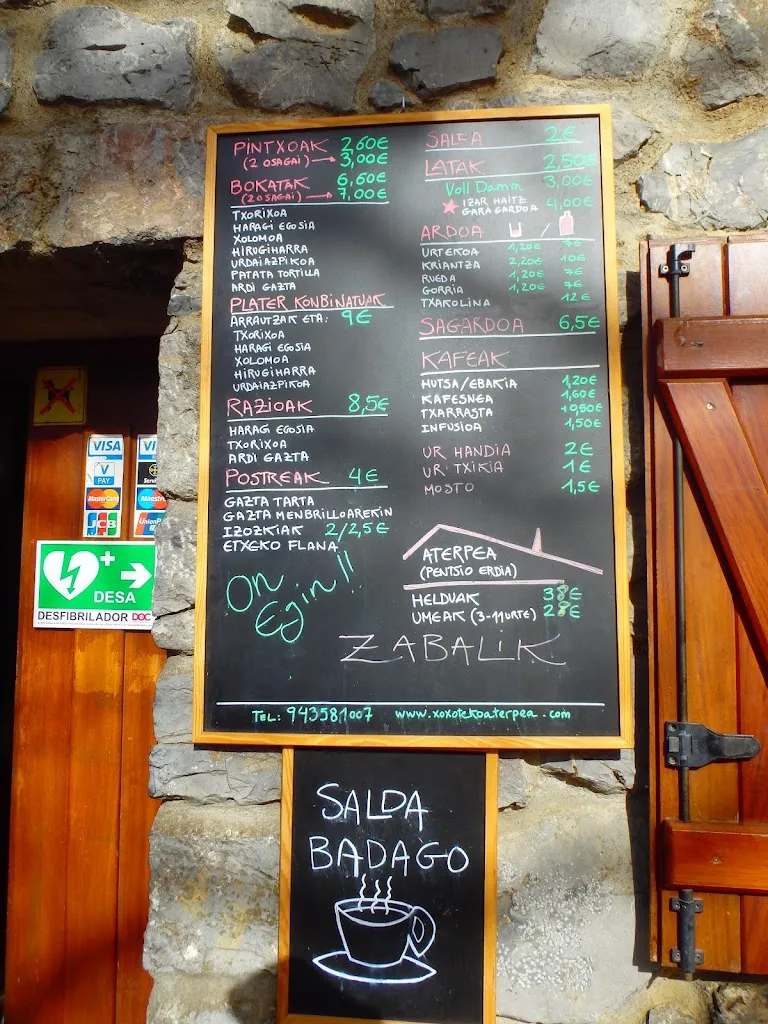 PINTXOAK 2,60€
(2 OSAGAI) → 3,00€
BOKATAK 6,60€
(2 OSAGAI) → 7,00€
TXORIXOA
HARAGI EGOSIA
XOLOMOA
HIRUGIHARRA
URDAIAZPIKOA
PATATA TORTILLA
ARDI GAZTA
PLATER KONBINATUAK
ARRAUTZAK ETA: 9€
TXORIXOA
HARAGI EGOSIA
XOLOMOA
HIRUGIHARRA
URDAIAZPIKOA
RAZIOAK 8,5€
HARAGI EGOSIA
TXORIXOA
ARDI GAZTA
POSTREAK 4€
GAZTA TARTA
GAZTA MENBRILLOAREKIN
IZOZKIAK 2/2,5€
ETXEKO FLANA
On Egin!!
SALDA 2€
LATAK 2,50€
Voll Damm 3,00€
IZAR HAITZ 4,00€
GARAGARDOA
ARDOA /
URTEKOA 1,20€ 7€
KRIANTZA 2,20€ 10€
RUEDA 1,20€ 7€
GORRIA 1,20€ 7€
TXAKOLINA 12€
SAGARDOA 6,5€
KAFEAK
HUTSA/EBAKIA 1,20€
KAFESNEA 1,60€
TXARRASTA +0,50€
INFUSIOA 1,50€
UR HANDIA 2€
UR TXIKIA 1€
MOSTO 1,5€
ATERPEA
(PENTSIO ERDIA)
HELDUAK 38€
UMEAK (3-11URTE) 28€
ZABALIK
TEL: 943581007 www.xoxotekoaterpea.com
SALDA
BADAGO
VISA
VISA
V
PAY
MasterCard
Maestro
JCB
DESA
DESFIBRILADOR DOC